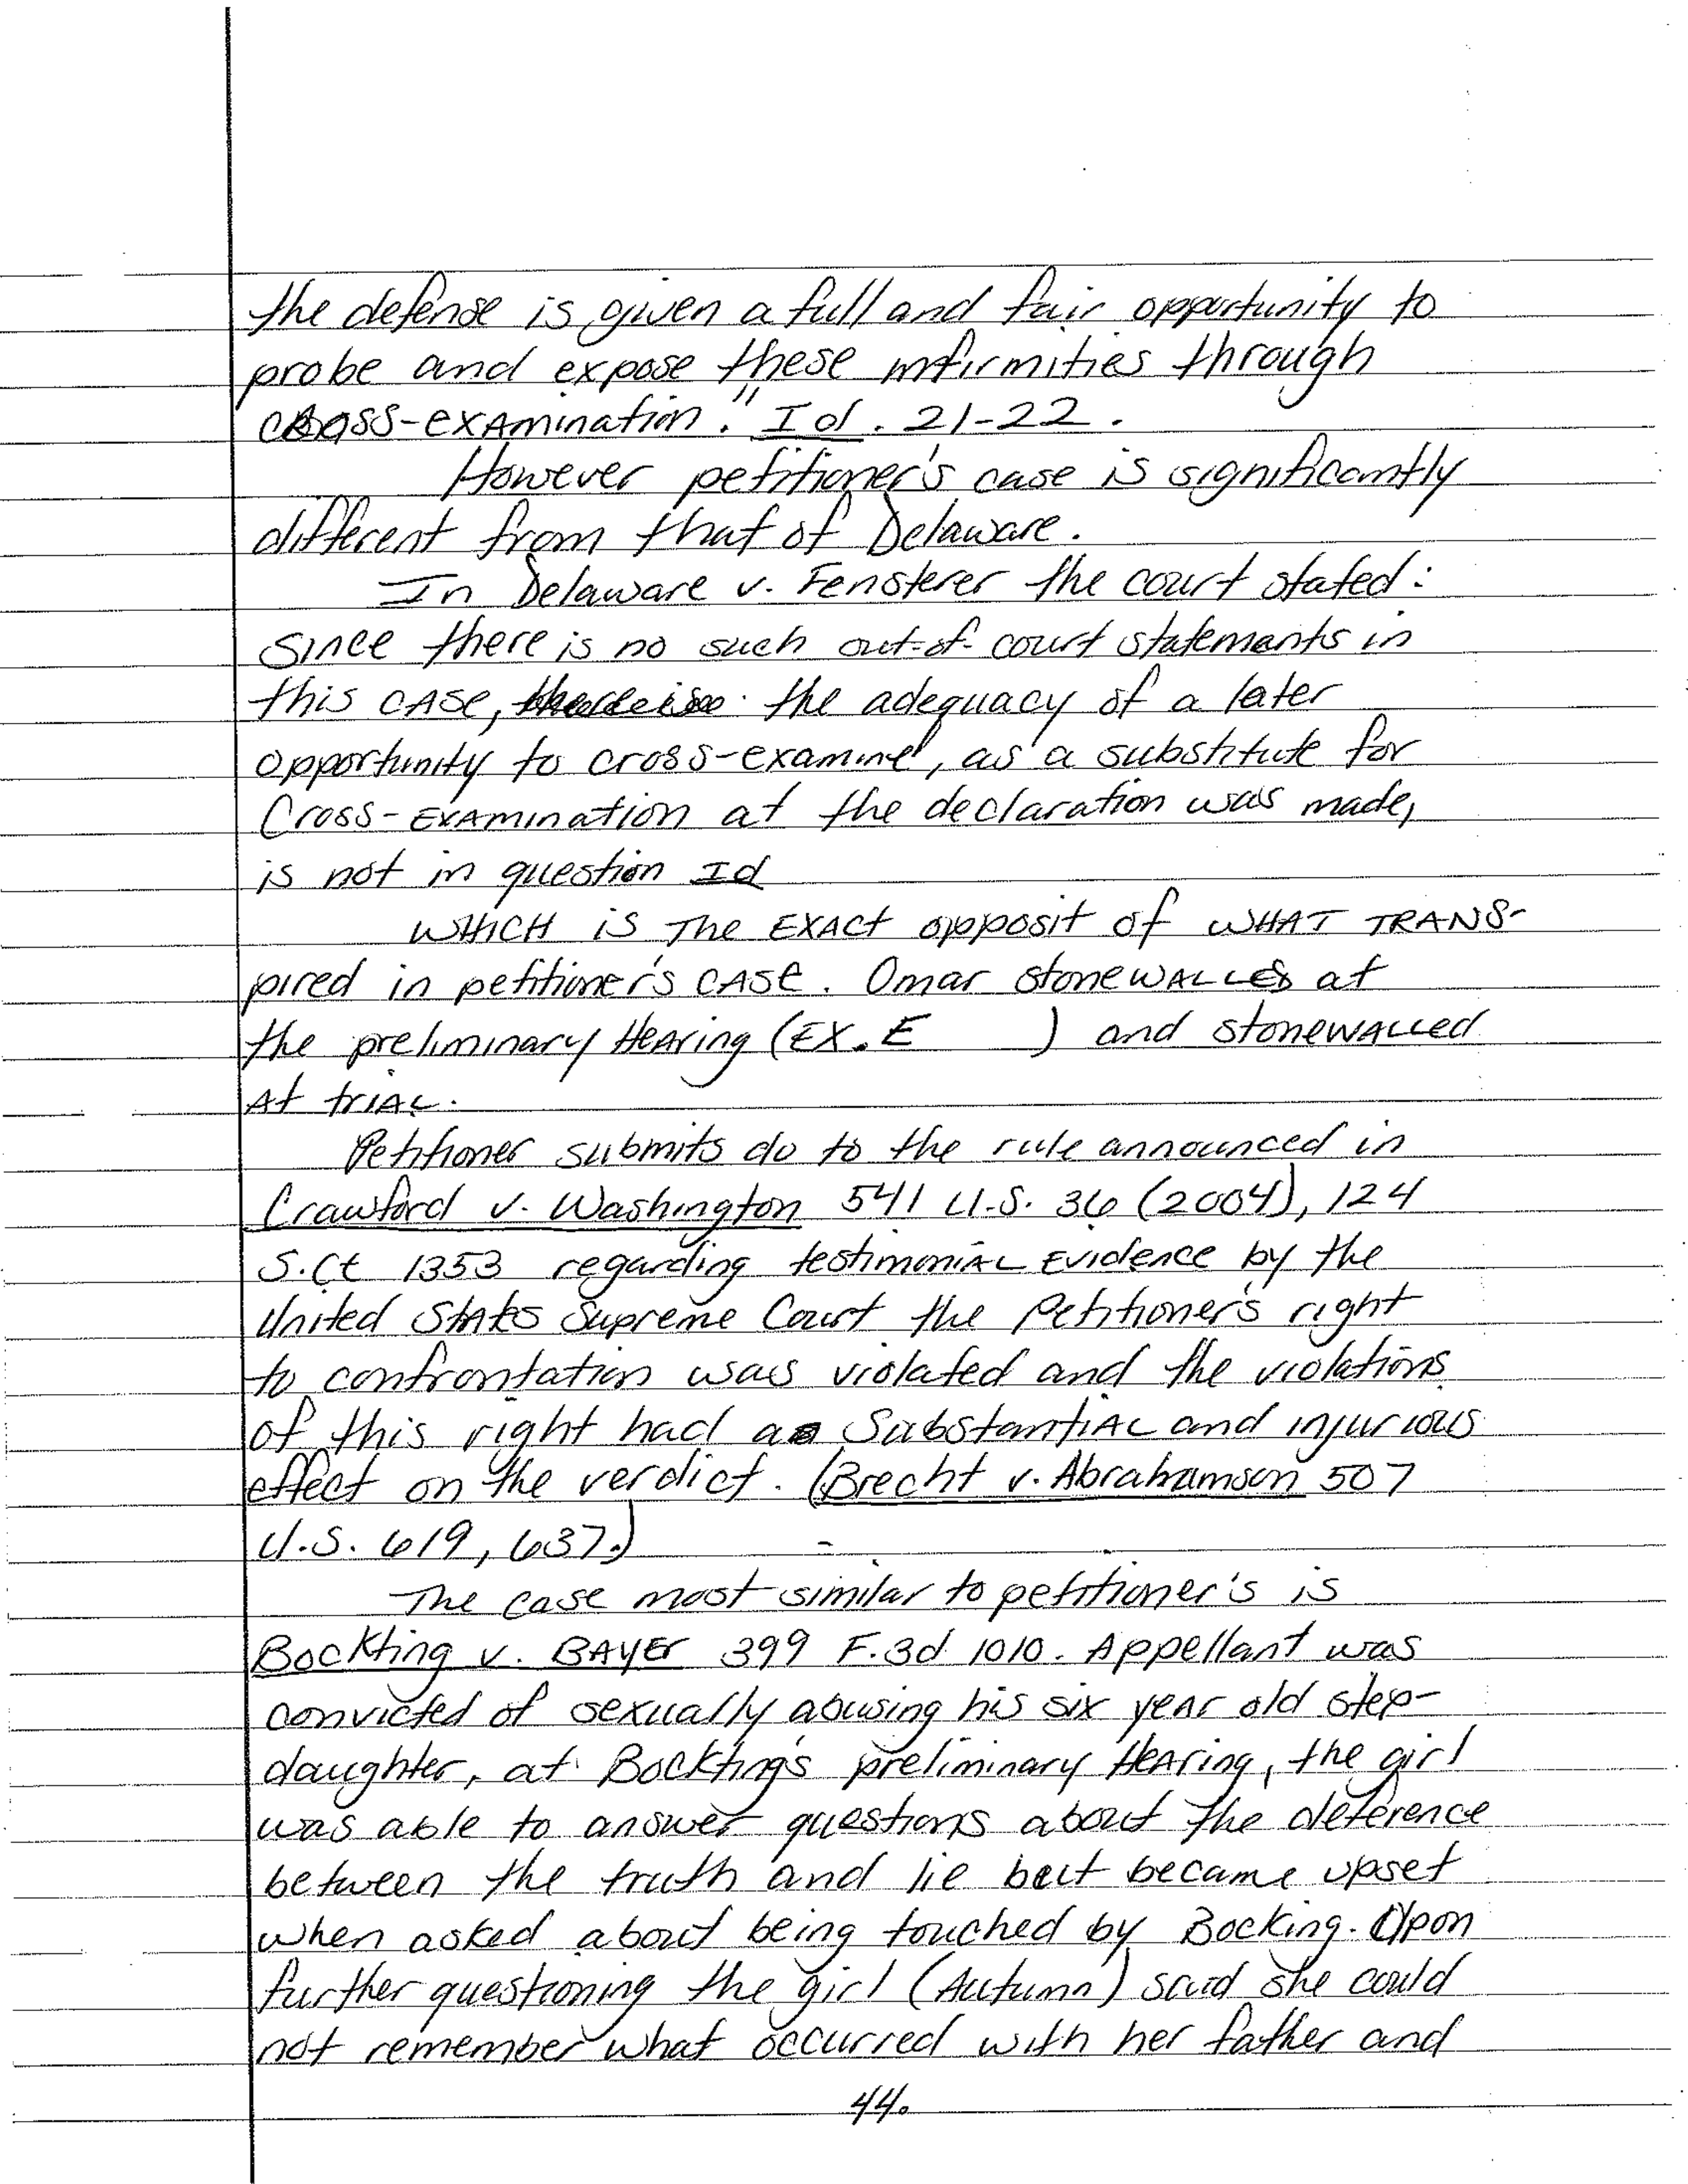 the defense is given a full and fair opportunity to
probe and expose these infirmities through
cross-examination." Id. 21-22.
However petitioner's case is significantly
different from that of Delaware.
In Delaware v. Fensterer the court stated:
since there is no such out-of-court statements in
this case, the adequacy of a later
opportunity to cross-examine, as a substitute for
Cross-Examination at the declaration was made,
is not in question Id
WHICH is The EXACt opposit of WHAT TRANS-
pired in petitioner's CASE. Omar stoneWALLES at
the preliminary HEAring (EX. E ) and stoneWALLED
At triAL.
Petitioner submits do to the rule announced in
Crawford v. Washington 541 U.S. 36 (2004), 124
S.Ct 1353 regarding testimoniAL Evidence by the
United States Supreme Court the Petitioner's right
to confrontation was violated and the violations
of this right had a SubstantiAL and injurious
effect on the verdict. (Brecht v. Abrahamson 507
U.S. 619, 637.)
The case most similar to petitioner's is
Bockting v. BAYEr 399 F.3d 1010. Appellant was
convicted of sexually abusing his six year old step-
daughter, at Bockting's preliminary HEAring, the girl
was able to answer questions about the deference
between the truth and lie but became upset
when asked about being touched by Bocking. Upon
further questioning the girl (Autumn) said she could
not remember what occurred with her father and
44.